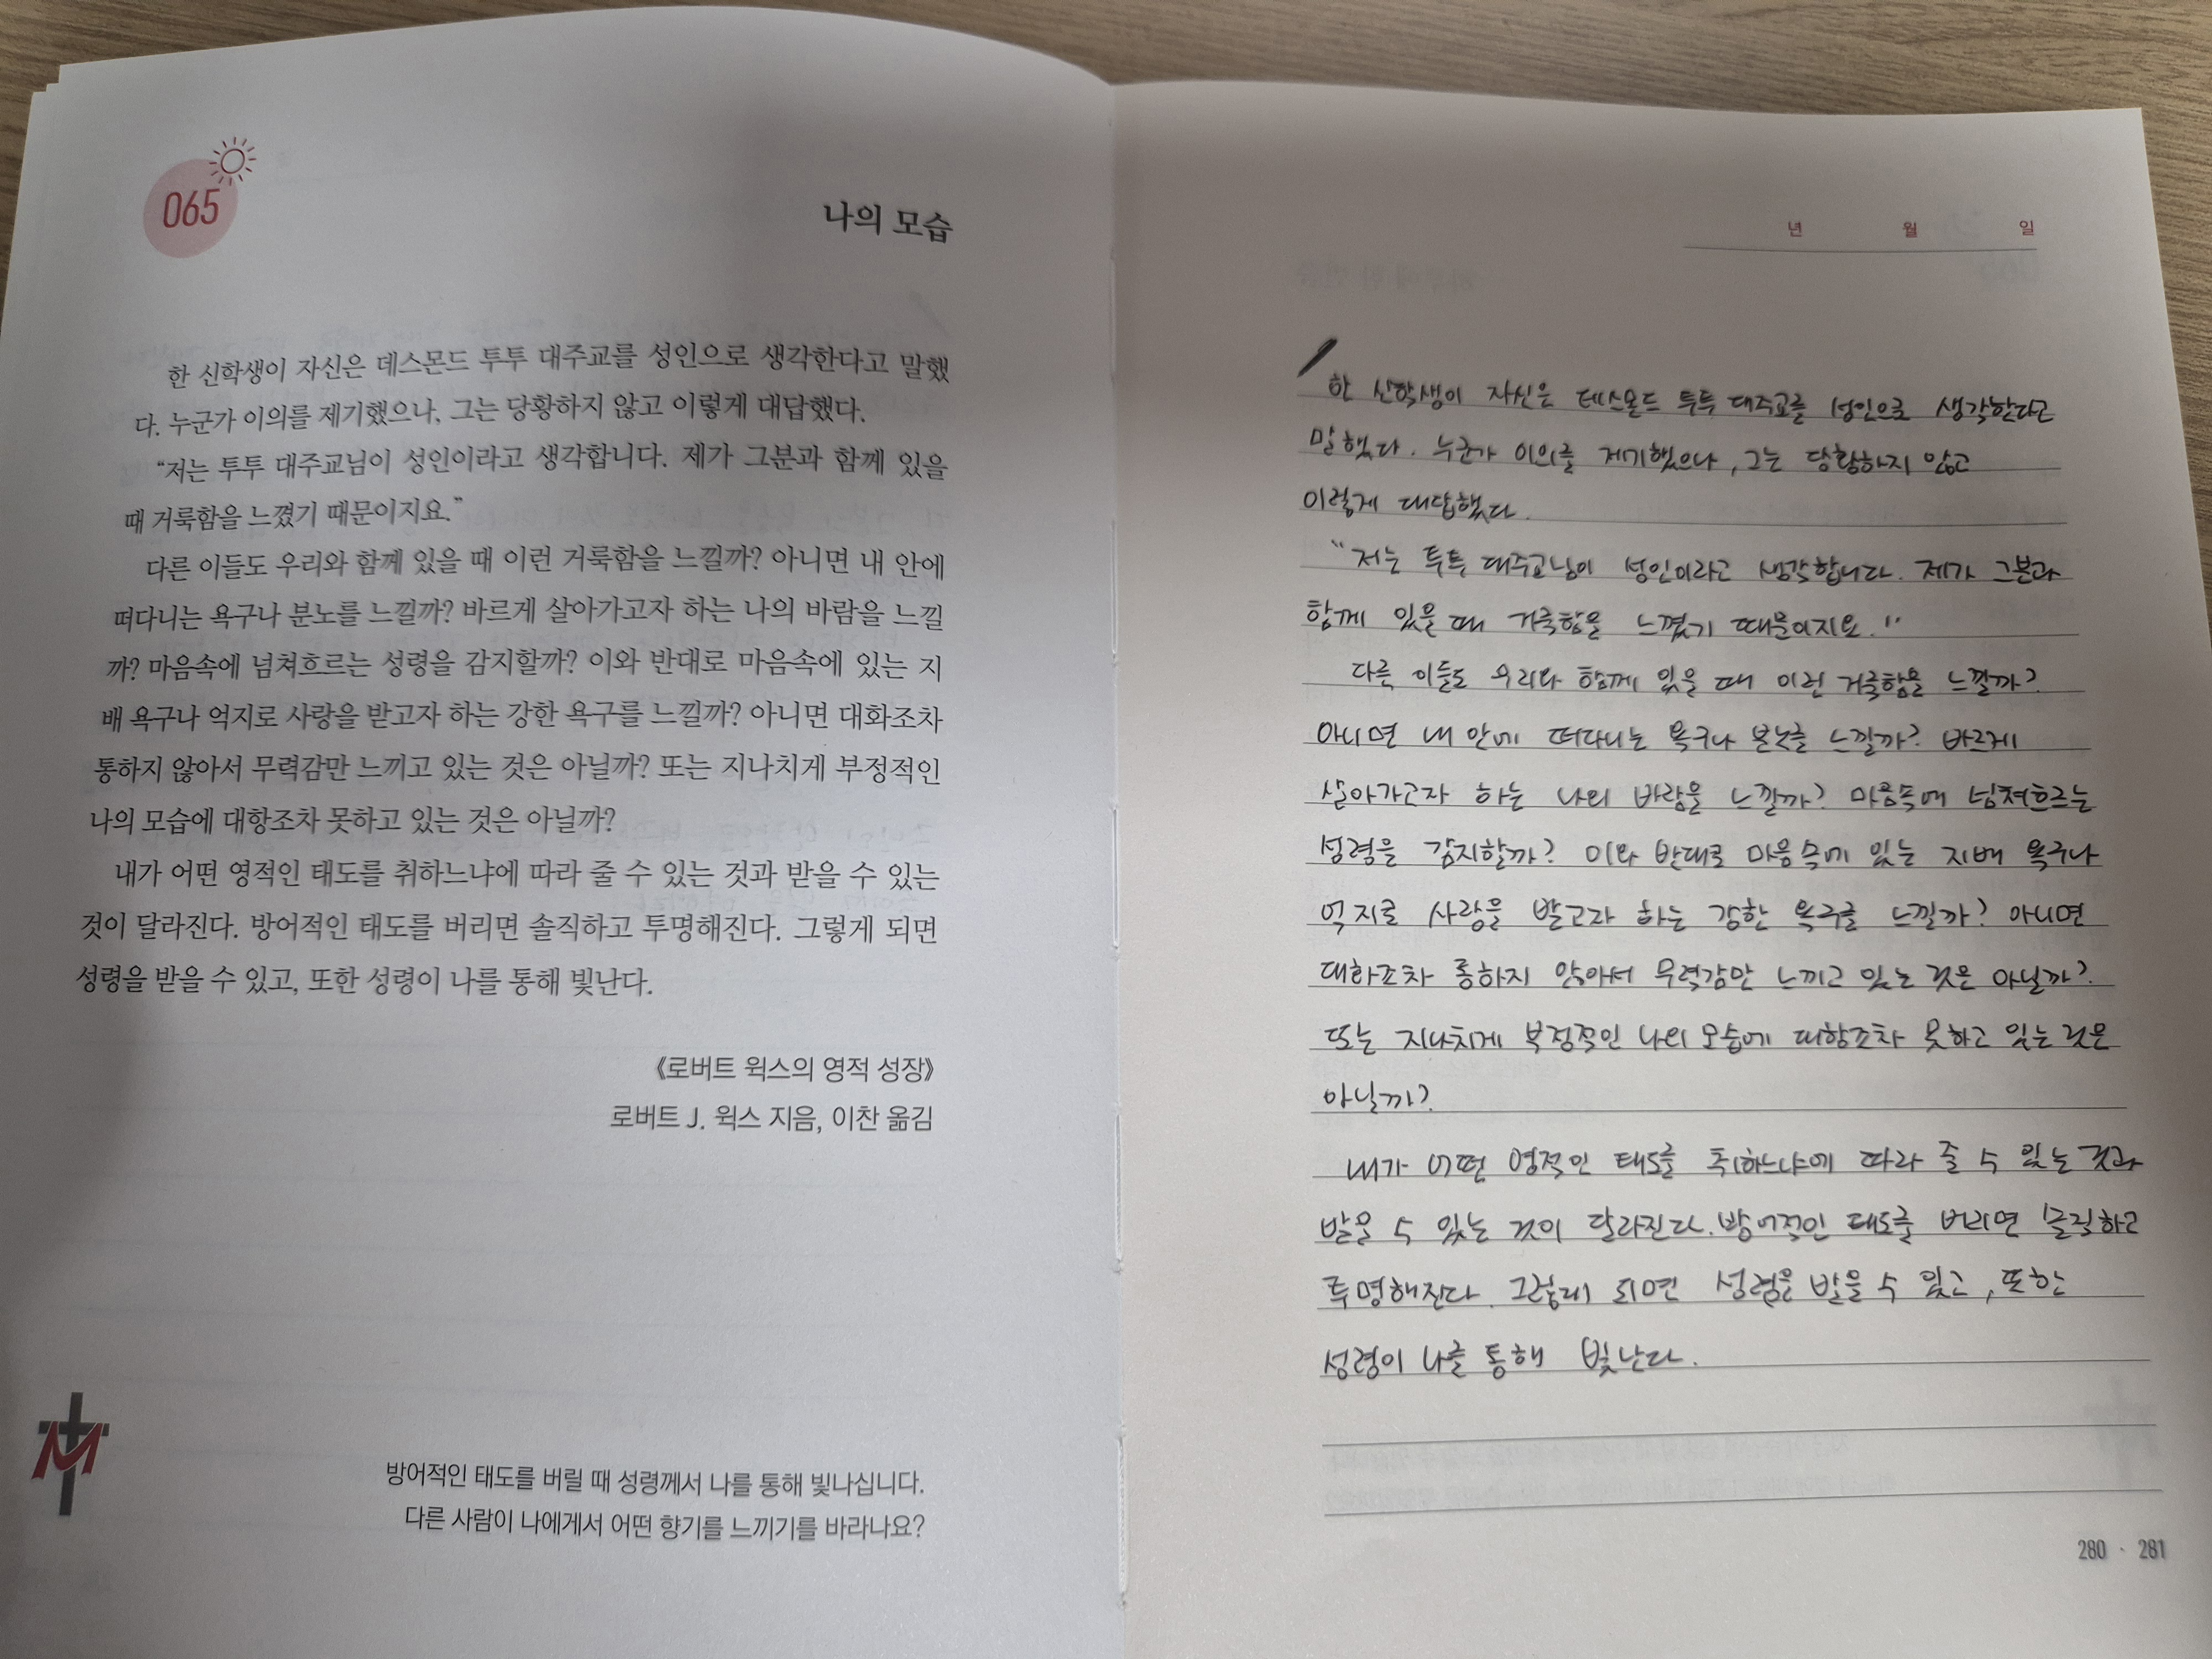 065
나의 모습
한 신학생이 자신은 데스몬드 투투 대주교를 성인으로 생각한다고 말했
다. 누군가 이의를 제기했으나, 그는 당황하지 않고 이렇게 대답했다.
“저는 투투 대주교님이 성인이라고 생각합니다. 제가 그분과 함께 있을
때 거룩함을 느꼈기 때문이지요.”
다른 이들도 우리와 함께 있을 때 이런 거룩함을 느낄까? 아니면 내 안에
떠다니는 욕구나 분노를 느낄까? 바르게 살아가고자 하는 나의 바람을 느낄
까? 마음속에 넘쳐흐르는 성령을 감지할까? 이와 반대로 마음속에 있는 지
배 욕구나 억지로 사랑을 받고자 하는 강한 욕구를 느낄까? 아니면 대화조차
통하지 않아서 무력감만 느끼고 있는 것은 아닐까? 또는 지나치게 부정적인
나의 모습에 대항조차 못하고 있는 것은 아닐까?
내가 어떤 영적인 태도를 취하느냐에 따라 줄 수 있는 것과 받을 수 있는
것이 달라진다. 방어적인 태도를 버리면 솔직하고 투명해진다. 그렇게 되면
성령을 받을 수 있고, 또한 성령이 나를 통해 빛난다.
《로버트 윅스의 영적 성장》
로버트 J. 윅스 지음, 이찬 옮김
M
방어적인 태도를 버릴 때 성령께서 나를 통해 빛나십니다.
다른 사람이 나에게서 어떤 향기를 느끼기를 바라나요?
년 월 일
한 신학생이 자신은 데스몬드 투투 대주교를 성인으로 생각한다고
말했다. 누군가 이의를 제기했으나, 그는 당황하지 않고
이렇게 대답했다.
“저는 투투 대주교님이 성인이라고 생각합니다. 제가 그분과
함께 있을 때 거룩함을 느꼈기 때문이지요."
다른 이들도 우리와 함께 있을 때 이런 거룩함을 느낄까?
아니면 내 안에 떠다니는 욕구나 분노를 느낄까? 바르게
살아가고자 하는 나의 바람을 느낄까? 마음속에 넘쳐흐르는
성령을 감지할까? 이와 반대로 마음속에 있는 지배 욕구나
억지로 사랑을 받고자 하는 강한 욕구를 느낄까? 아니면
대화조차 통하지 않아서 무력감만 느끼고 있는 것은 아닐까?
또는 지나치게 부정적인 나의 모습에 대항조차 못하고 있는 것은
아닐까?
내가 어떤 영적인 태도를 취하느냐에 따라 줄 수 있는 것과
받을 수 있는 것이 달라진다. 방어적인 태도를 버리면 솔직하고
투명해진다. 그렇게 되면 성령을 받을 수 있고, 또한
성령이 나를 통해 빛난다.
280 · 281